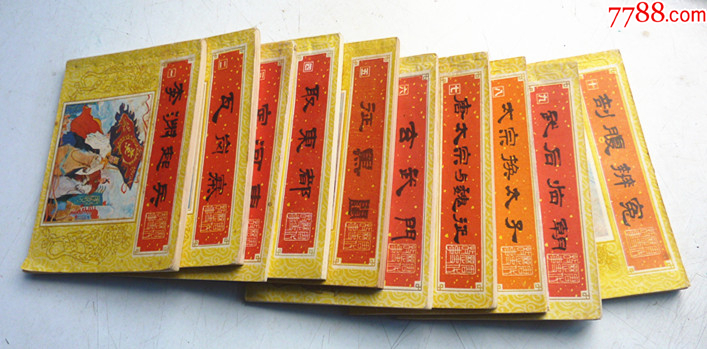 7788.com
一
李渊起兵
二
瓦岗寨
三
四
取东都
五
征黑闼
六
玄武门
七
唐太宗与魏征
八
太宗换太子
九
武后临朝
十
剖腹辨冤